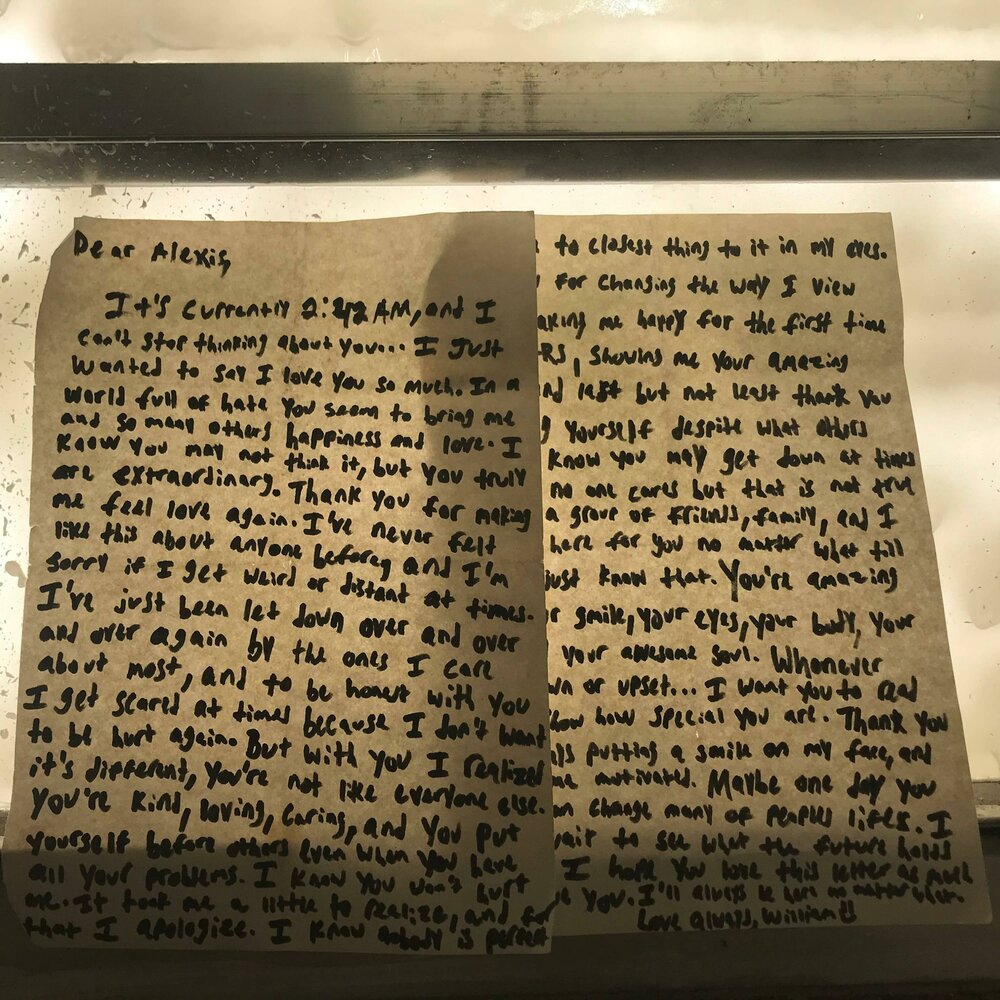 Dear Alexis,
It's currently 2:42 AM, and I
can't stop thinking about you... I Just
wanted to say I love you so much. In a
world full of hate you seem to bring me
and so many others happiness and love. I
know you may not think it, but you truly
are extraordinary. Thank you for making
me feel love again. I've never felt
like this about anyone before, and I'm
sorry if I get weird or distant at times.
I've just been let down over and over
and over again by the ones I care
about most, and to be honest with you
I get scared at times because I don't want
to be hurt again. But with you I realized
it's different, you're not like everyone else.
you're kind, loving, caring, and you put
yourself before others even when you have
all your problems. I know you won't hurt
me. It took me a little to realize, and for
that I apologize. I know nobody is perfect
to closest thing to it in my eyes.
for changing the way I view
aking me happy for the first time
RS, showing me your amazing
nd last but not least thank you
yourself despite what others
know you may get down at times
no one cares but that is not true
a group of friends, family, and I
here for you no matter what till
just know that. You're amazing
r smile, your eyes, your body, your
your awesome soul. Whenever
wn or upset... I want you to read
how special you are. Thank you
ys putting a smile on my face, and
me motivated. Maybe one day you
n change many of peoples lifes. I
wait to see what the future holds
I hope you love this letter as much
e you. I'll always be here no matter when.
Love always, William